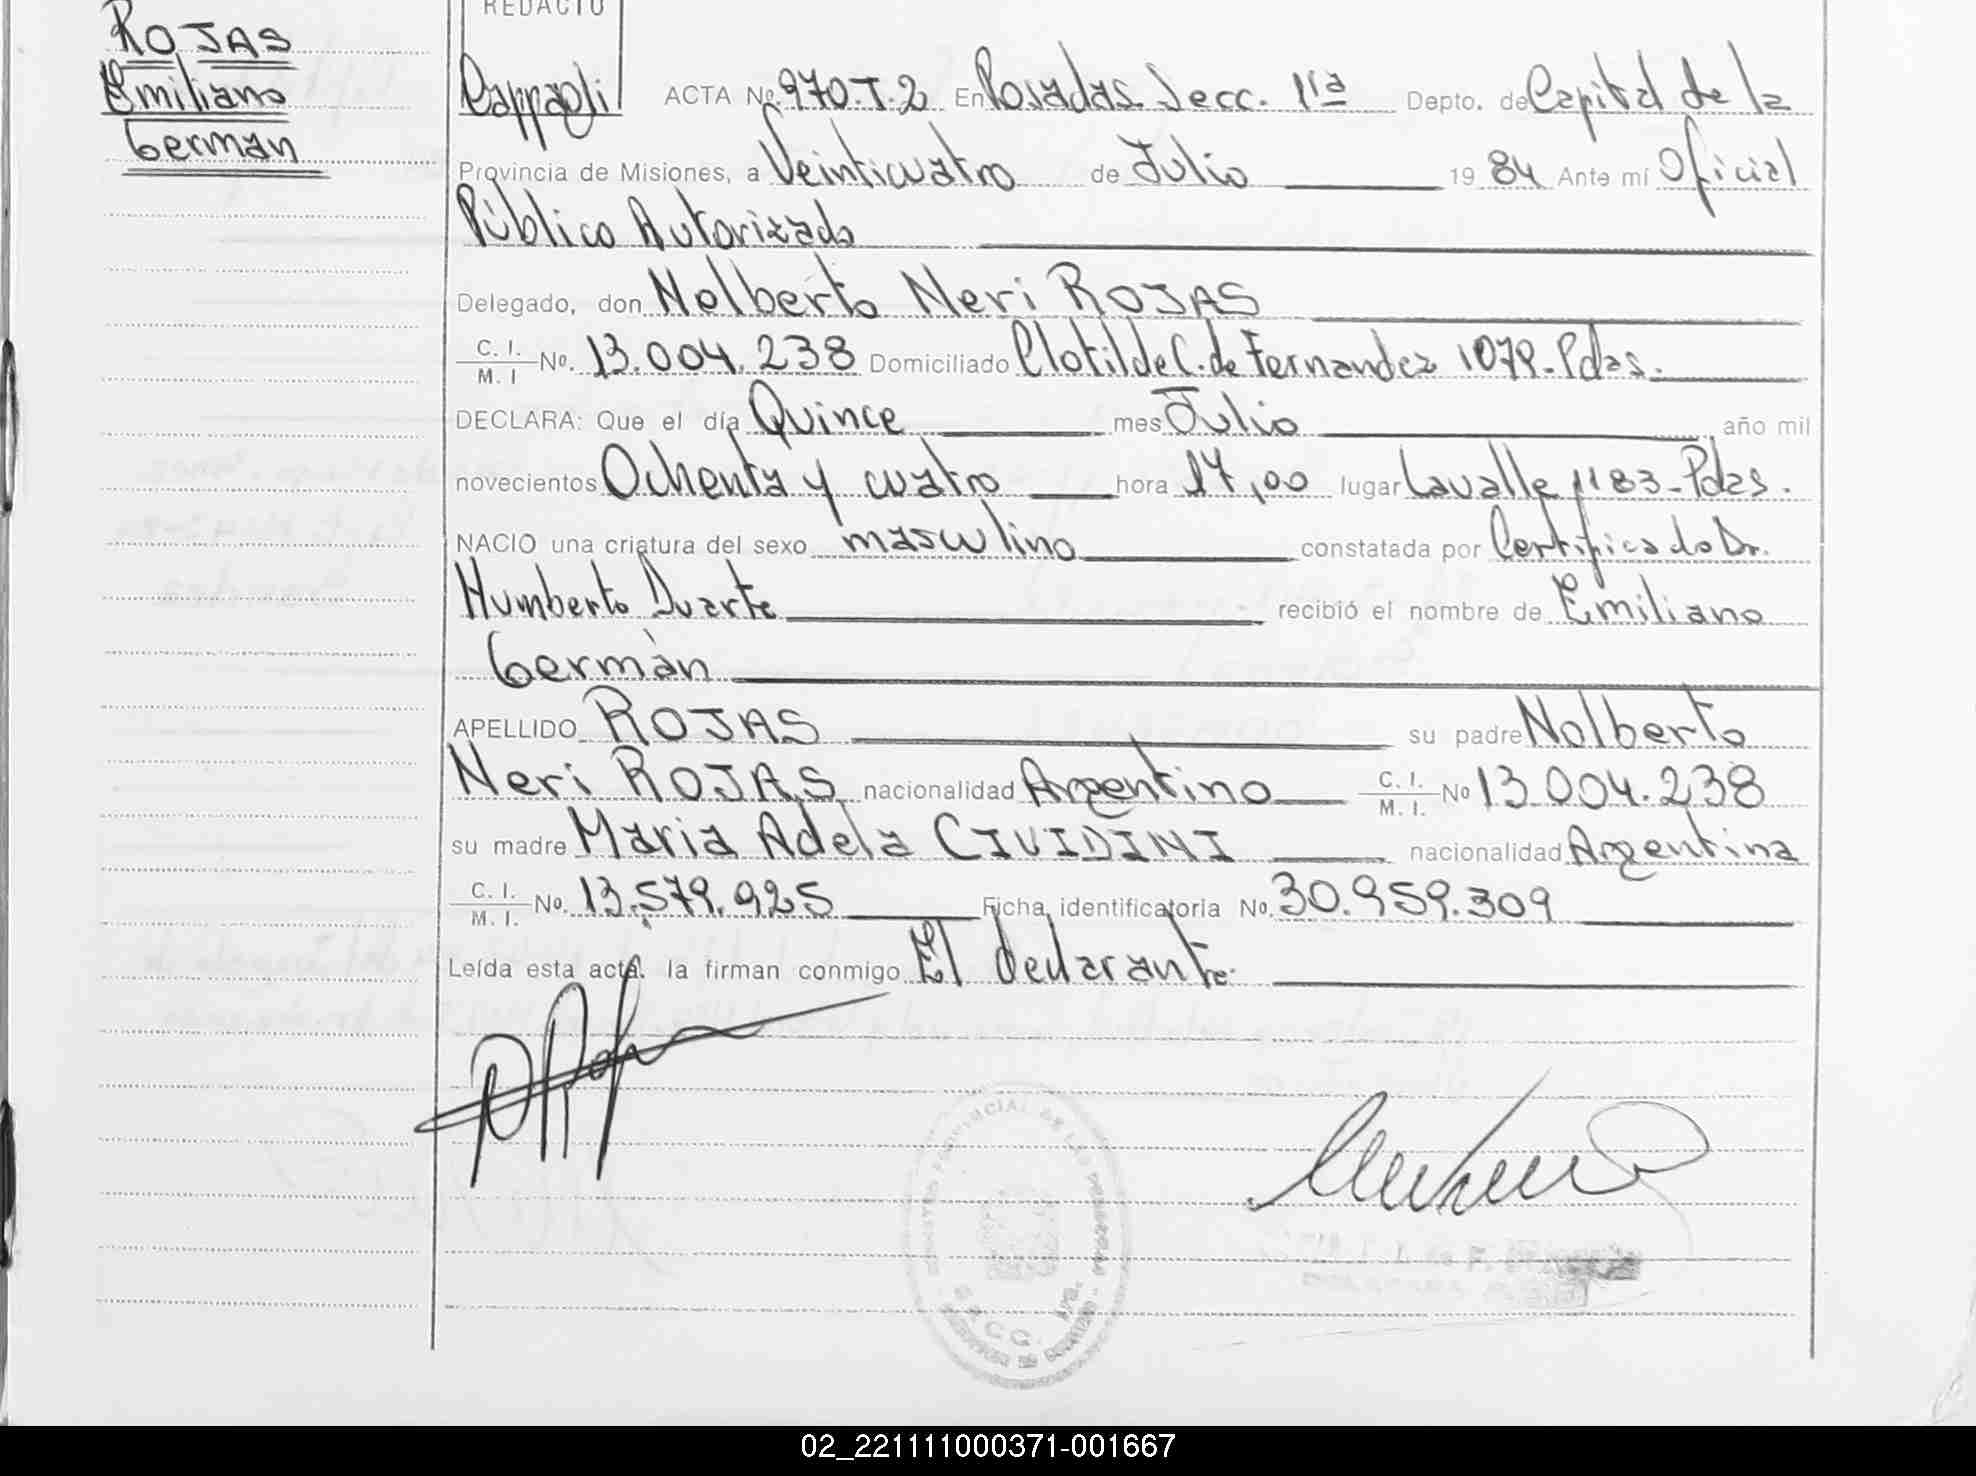 ROJAS
Emiliano
German
REDACTO
ACTA No. 970.T.2 En Posadas Secc. 1ra Depto. de Capital de la
Provincia de Misiones, a Veinticuatro de Julio 1984 Ante mí Oficial
Público Autorizado
Delegado, don Nolberto Neri ROJAS
C. I. / M. I No. 13.004.238 Domiciliado Clotilde C. de Fernandez 1079-Pdas.
DECLARA: Que el día Quince mes Julio año mil
novecientos Ochenta y cuatro hora 17,00 lugar Lavalle 1183-Pdas.
NACIO una criatura del sexo masculino constatada por Certificado Dr.
Humberto Duarte recibió el nombre de Emiliano
Germàn
APELLIDO ROJAS su padre Nolberto
Neri ROJAS nacionalidad Argentino C. I. / M. I. No 13.004.238
su madre Maria Adela CIVIDINI nacionalidad Argentina
C. I. / M. I. No. 13.579.925 Ficha identificatoria No. 30.959.309
Leída esta acta. la firman conmigo El declarante.
02_221111000371-001667